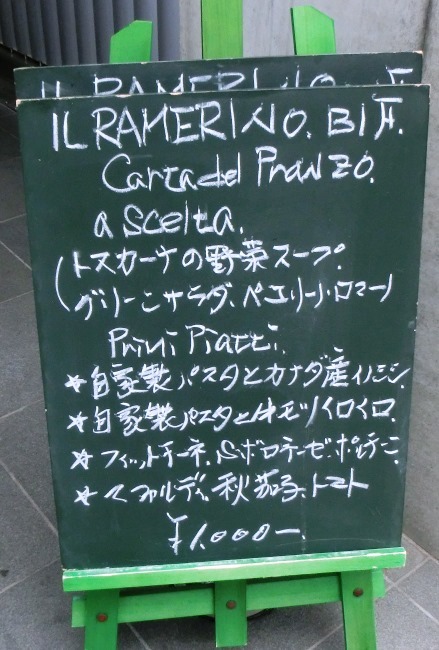 IL RAMERINO. B1F.
Carta del Pranzo.
a scelta.
トスカーナの野菜スープ.
グリーンサラダ、ペコリーノ・ロマーノ
Primi Piatti.
☆自家製パスタとカナダ産イノシシ.
☆自家製パスタと牛モツイロイロ.
☆フィットチーネ、ボロネーゼ、ポルチーニ
☆マファルディ、秋茄子、トマト
¥1.000-.